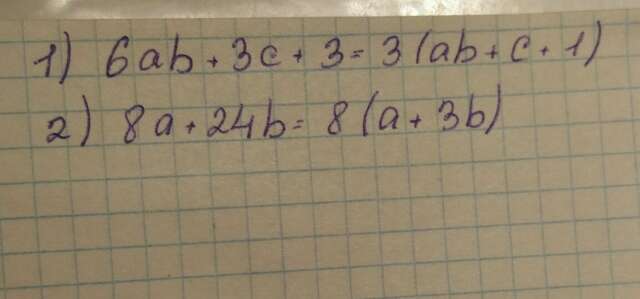 1) 6ab + 3c + 3 = 3(ab + c + 1)
2) 8a + 24b = 8(a + 3b)